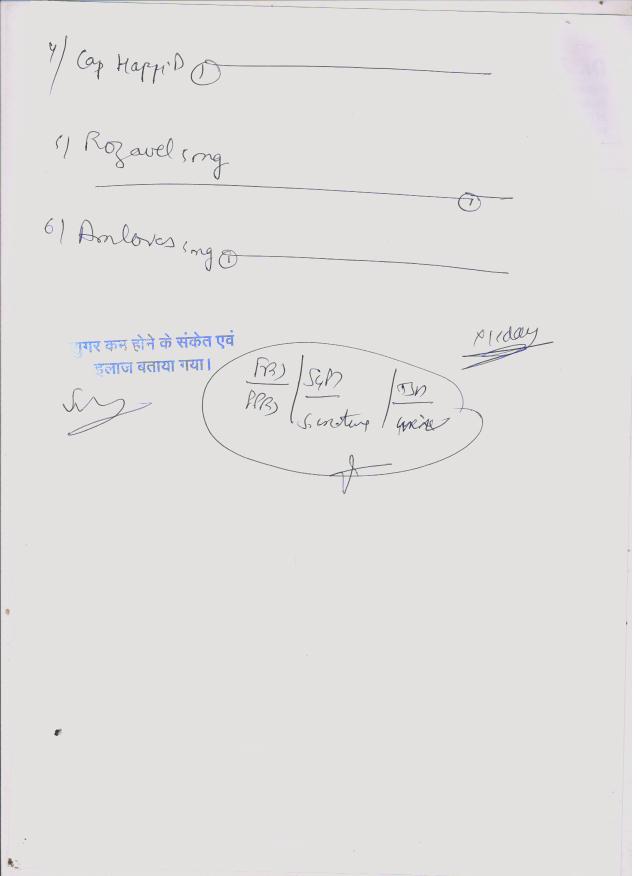 4) Cap Happi D ①
5) Rozavel 5mg
①
6) Amlovas 5mg ①
शुगर कम होने के संकेत एवं
इलाज बताया गया।
FBS
PPBS
S. creatinine
urine